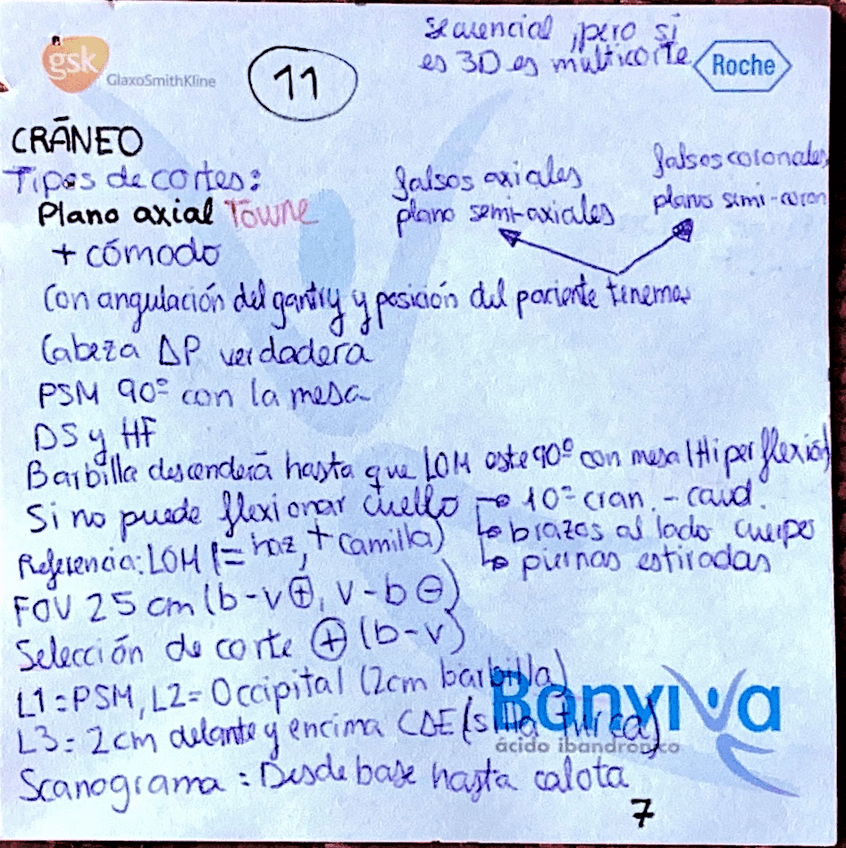 secuencial, pero si
es 3D es multicorte
gsk
GlaxoSmithKline
11
Roche
CRÁNEO
Tipos de cortes:
falsos axiales
falsos coronales
Plano axial Towne
plano semi-axiales
planos semi-coron
+ cómodo
Con angulación del gantry y posición del paciente tenemos
Cabeza AP verdadera
PSM 90º con la mesa
DS y HF
Barbilla descenderá hasta que LOM este 90º con mesa (Hiperflexión)
Si no puede flexionar cuello → 10º cran. - caud.
↳ brazos al lado cuerpo
Referencia: LOM (= haz, + camilla)
↳ piernas estiradas
FOV 25 cm (b-v ⊕, v-b ⊖)
Selección de corte ⊕ (b-v)
L1 = PSM, L2 = Occipital (2cm barbilla)
L3 = 2cm delante y encima CAE (silla turca)
Bonviva
ácido ibandrónico
Scanograma = Desde base hasta calota
7